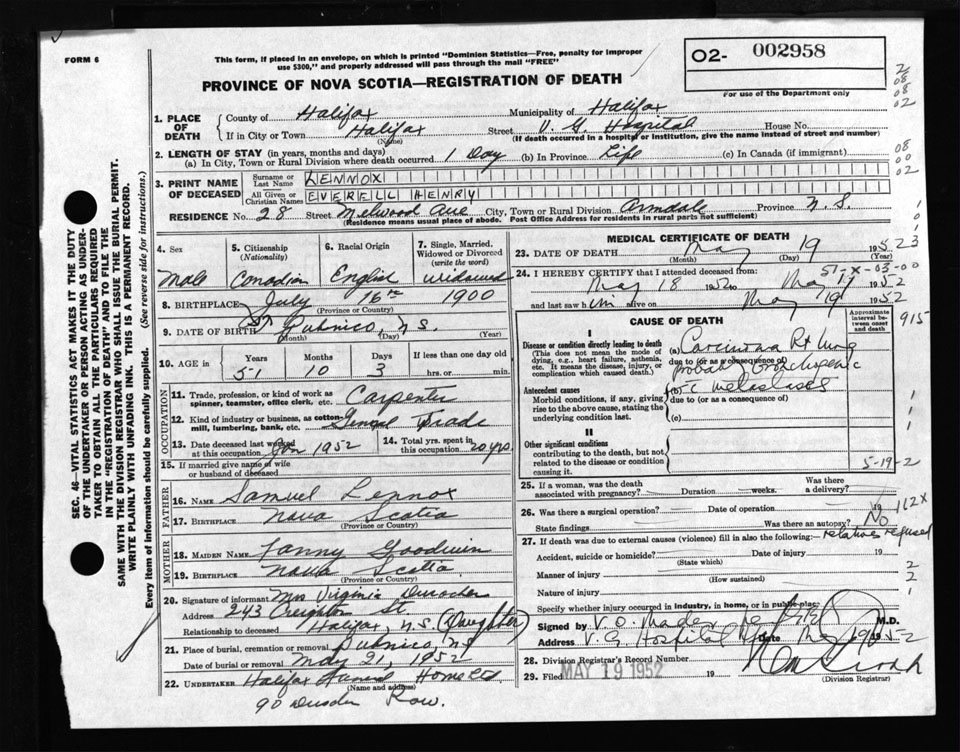 FORM 6
This form, if placed in an envelope, on which is printed "Dominion Statistics—Free, penalty for improper
use $300," and properly addressed will pass through the mail "FREE"
O2- 002958
For use of the Department only
PROVINCE OF NOVA SCOTIA—REGISTRATION OF DEATH
1. PLACE OF DEATH
County of Halifax Municipality of Halifax
If in City or Town Halifax Street V. G. Hospital House No.
(Name) (If death occurred in a hospital or institution, give the name instead of street and number)
2. LENGTH OF STAY (in years, months and days)
(a) In City, Town or Rural Division where death occurred 1 Day (b) In Province Life (c) In Canada (if immigrant)
3. PRINT NAME OF DECEASED
Surname or Last Name LENNOX
All Given or Christian Names EVERELL HENRY
RESIDENCE No. 28 Street Melwood Ave City, Town or Rural Division Armdale Province N.S.
(Residence means usual place of abode. Post Office Address for residents in rural parts not sufficient)
4. Sex
Male
5. Citizenship (Nationality)
Canadian
6. Racial Origin
English
7. Single, Married, Widowed or Divorced (write the word)
widowed
8. BIRTHPLACE July 16th 1900
(Province or Country)
9. DATE OF BIRTH Pubnico, N.S.
(Month) (Day) (Year)
10. AGE IF
Years Months Days If less than one day old
51 10 3 hrs. or min.
OCCUPATION
11. Trade, profession, or kind of work as spinner, teamster, office clerk, etc. Carpenter
12. Kind of industry or business, as cotton mill, lumbering, bank, etc. General Trade
13. Date deceased last worked at this occupation Jan 1952
14. Total yrs. spent in this occupation 20 yrs.
15. If married give name of wife or husband of deceased
FATHER
16. NAME Samuel Lennox
17. BIRTHPLACE Nova Scotia
(Province or Country)
MOTHER
18. MAIDEN NAME Fanny Goodwin
19. BIRTHPLACE Nova Scotia
(Province or Country)
20. Signature of informant Mrs Virginia
Address 243 Creighton St
Halifax, N.S.
Relationship to deceased (Daughter)
21. Place of burial, cremation or removal Pubnico, NS
Date of burial or removal May 21, 1952
22. UNDERTAKER Halifax Funeral Home Ltd
(Name and address)
90 Row.
MEDICAL CERTIFICATE OF DEATH
23. DATE OF DEATH May 19 1952
(Month) (Day) (Year)
24. I HEREBY CERTIFY that I attended deceased from:
May 18 1952 to May 19 1952
and last saw him alive on May 19 1952
CAUSE OF DEATH
Approximate interval between onset and death
I
Disease or condition directly leading to death (a) Carcinoma Rt lung
(This does not mean the mode of dying, e.g., heart failure, asthenia, etc. It means the disease, injury, or complication which caused death.)
due to (or as a consequence of)
probably bronchogenic
Antecedent causes (b) c metastases
Morbid conditions, if any, giving rise to the above cause, stating the underlying condition last.
due to (or as a consequence of)
(c)
II
Other significant conditions
contributing to the death, but not related to the disease or condition causing it.
5-19-2
25. If a woman, was the death associated with pregnancy? Duration weeks. Was there a delivery?
26. Was there a surgical operation? Date of operation 19
State findings Was there an autopsy? No
relatives refused
27. If death was due to external causes (violence) fill in also the following:
Accident, suicide or homicide? Date of injury 19
(State which)
Manner of injury
(How sustained)
Nature of injury
Specify whether injury occurred in industry, in home, or in public place:
Signed by V. O. Mader M.D.
Address V. G. Hospital Date May 19 1952
28. Division Registrar's Record Number
29. Filed MAY 19 1952 19
(Division Registrar)
SEC. 46—VITAL STATISTICS ACT MAKES IT THE DUTY
OF THE UNDERTAKER OR PERSON ACTING AS UNDER-
TAKER TO OBTAIN ALL THE PARTICULARS REQUIRED
IN THE "REGISTRATION OF DEATH" AND TO FILE THE
SAME WITH THE DIVISION REGISTRAR WHO SHALL ISSUE THE BURIAL PERMIT.
WRITE PLAINLY WITH UNFADING INK. THIS IS A PERMANENT RECORD.
Every item of Information should be carefully supplied. (See reverse side for instructions.)